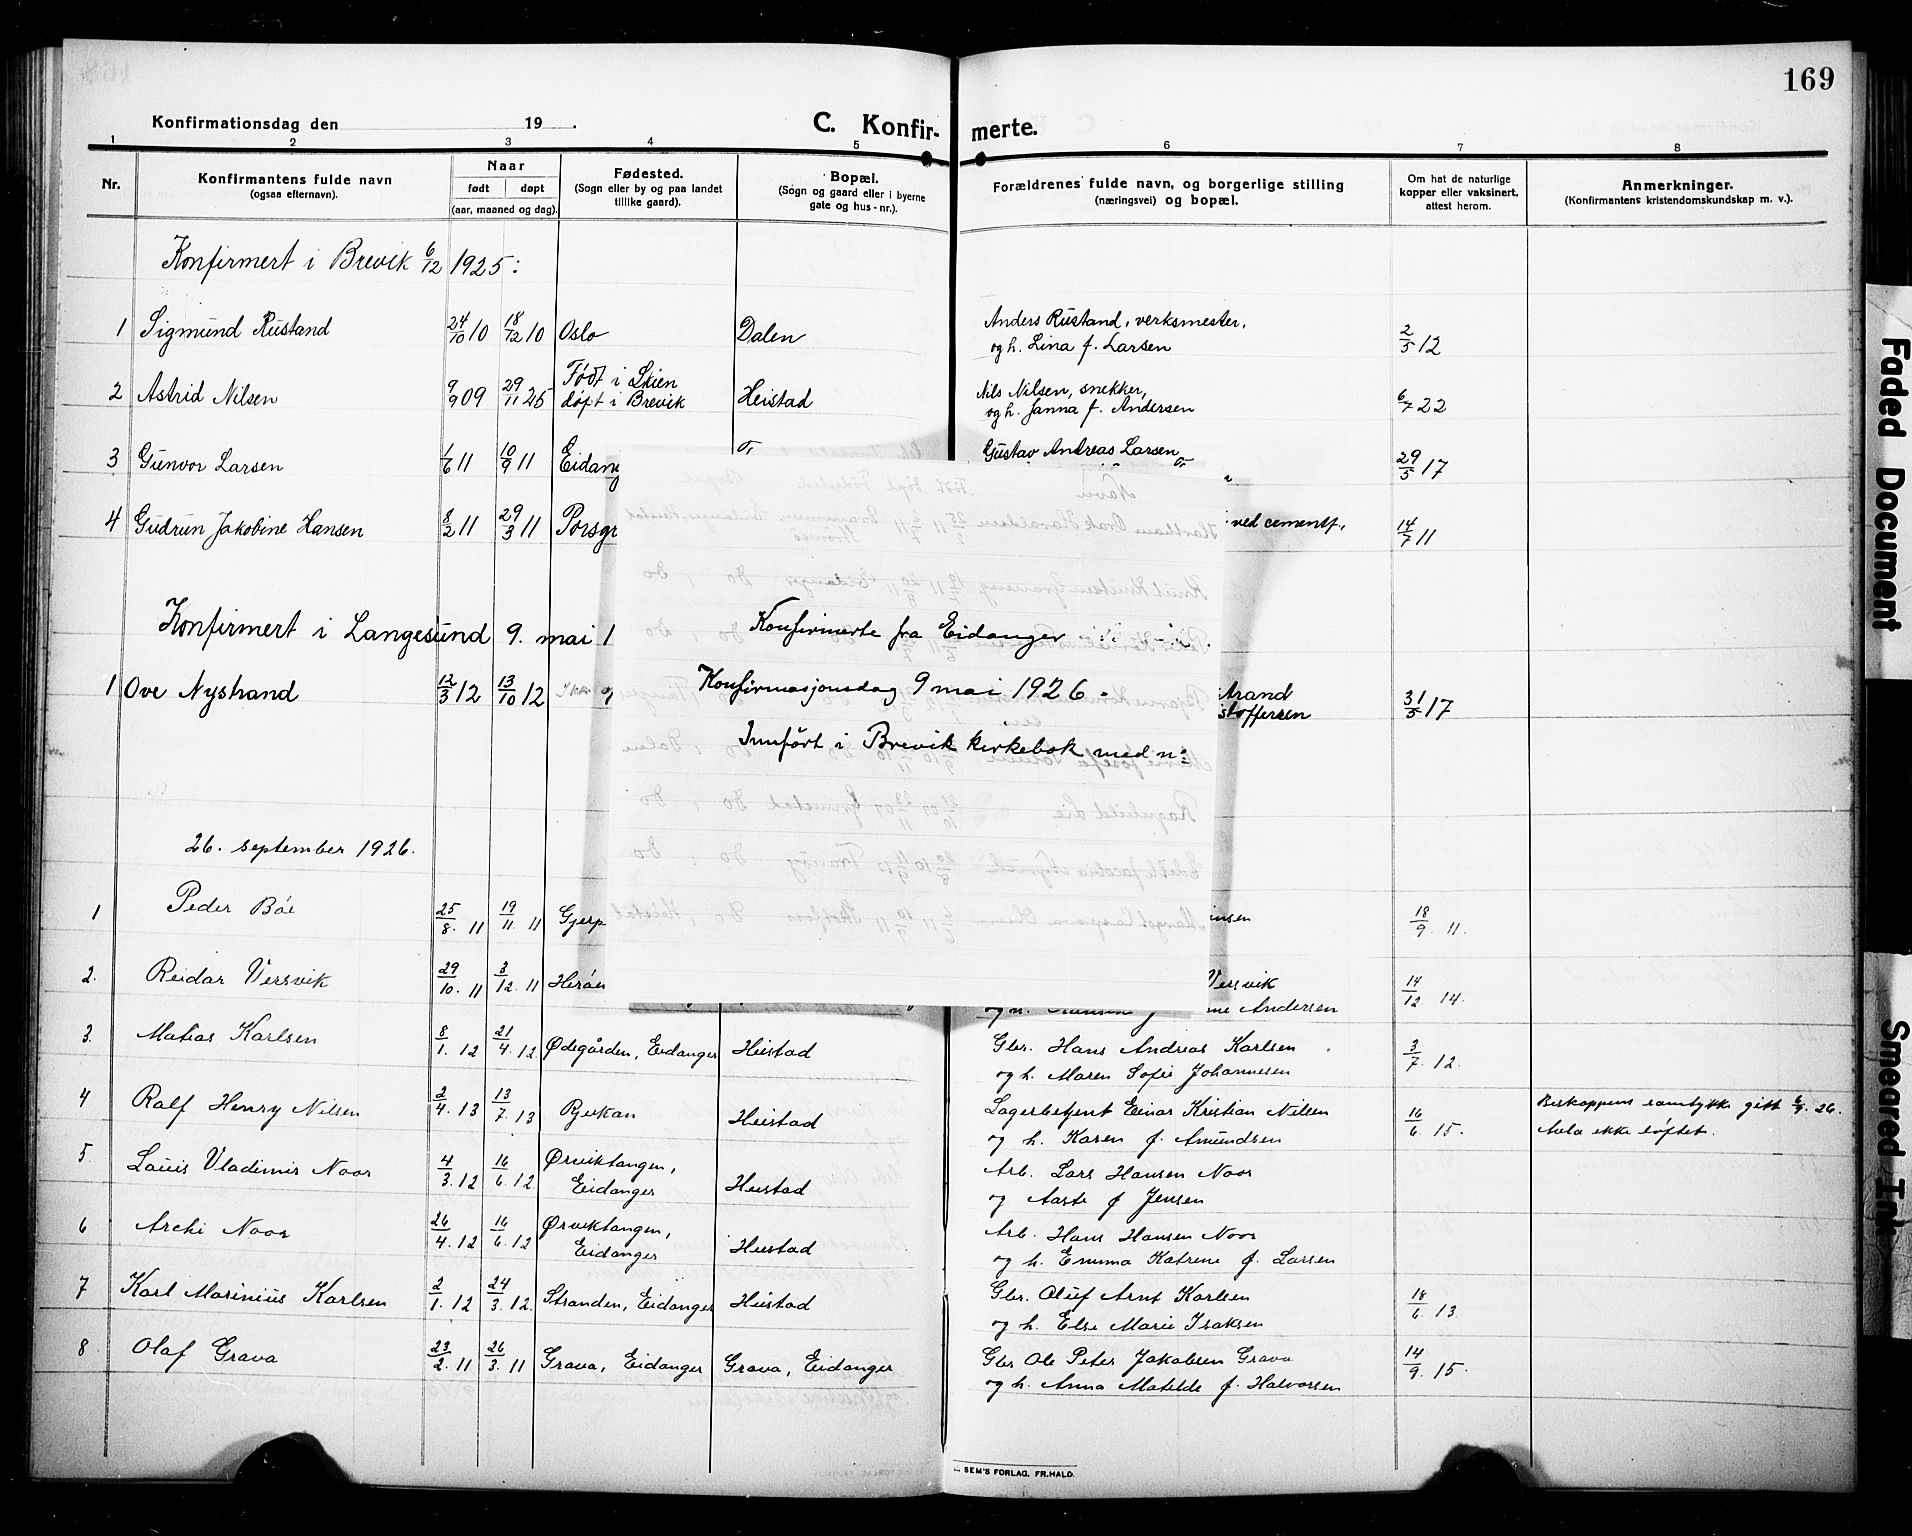 169
Konfirmationsdag den 19
C. Konfir- merte.
1 2 3 4 5 6 7 8
Nr.
Konfirmantens fulde navn
(ogsaa efternavn).
Naar
født døpt
(aar, maaned og dag).
Fødested.
(Sogn eller by og paa landet
tillike gaard).
Bopæl.
(Sogn og gaard eller i byerne
gate og hus-nr.).
Forældrenes fulde navn, og borgerlige stilling
(næringsvei) og bopæl.
Om hat de naturlige
kopper eller vaksinert.
attest herom.
Anmerkninger.
(Konfirmantens kristendomskundskap m. v.).
Konfirmert i Brevik 6/12 1925:
1 Sigmund Rustand 24/10 10 18/12 10 Oslo Dalen Anders Rustand, verksmester, 2/5 12
og h. Lina f. Larsen
2 Astrid Nilsen 9/9 09 29/11 25 Født i Skien Heistad Nils Nilsen, snekker, 6/7 22
døpt i Brevik og h. Janna f. Andersen
3 Gunvor Larsen 1/6 11 10/9 11 Eidang Gustav Andreas Larsen 29/5 17
4 Gudrun Jakobine Hansen 8/2 11 29/3 11 Porsgr ved cementf. 14/7 11
Konfirmert i Langesund 9. mai 1
1 Ove Nystrand 12/3 12 13/10 12 strand 31/5 17
stoffersen
Konfirmerte fra Eidanger
Konfirmasjonsdag 9 mai 1926.
Innført i Brevik kirkebok med n:
26. september 1926.
1 Peder Bøe 25/8. 11 19/11. 11 Gjerp insen 18/9. 11.
2. Reidar Versvik 29/10. 11 3/12. 11 Herøn Versvik 14/12 14.
og h. ne Andersen
3. Matias Karlsen 8/1. 12 21/4. 12 Ødegården, Eidanger Heistad Gbr. Hans Andreas Karlsen 3/7. 12.
og h. Maren Sofie Johannesen
4 Ralf Henry Nilsen 2/4. 13 13/7. 13 Rjukan Heistad Lagerbetjent Einar Kristian Nilsen 16/6. 15. Biskoppens samtykke gitt 6/9. 26.
og h. Karen f. Amundsen Avla ikke løftet.
5. Louis Vladimir Noor 4/3. 12 16/6. 12 Ørviktangen, Eidanger Heistad Arb. Lars Hansen Noor
og Aaste f Jensen
6 Archi Noor 26/4. 12 16/6. 12 Ørviktangen, Eidanger Heistad Arb. Hans Hansen Noor
og h. Emma Katrine f. Larsen
7 Karl Marinius Karlsen 2/1. 12 24/3. 12. Stranden, Eidanger Heistad Gbr. Oluf Arnt Karlsen 18/6. 13.
og h. Else Marie Isaksen
8 Olaf Grava 23/2. 11 26/3. 11 Grava, Eidanger Grava, Eidanger Gbr Ole Peter Jakobsen Grava 14/9. 15.
og h. Anna Matilde f. Halvorsen
SEM'S FORLAG, FR.HALD.
Faded Document
Smeared Ink